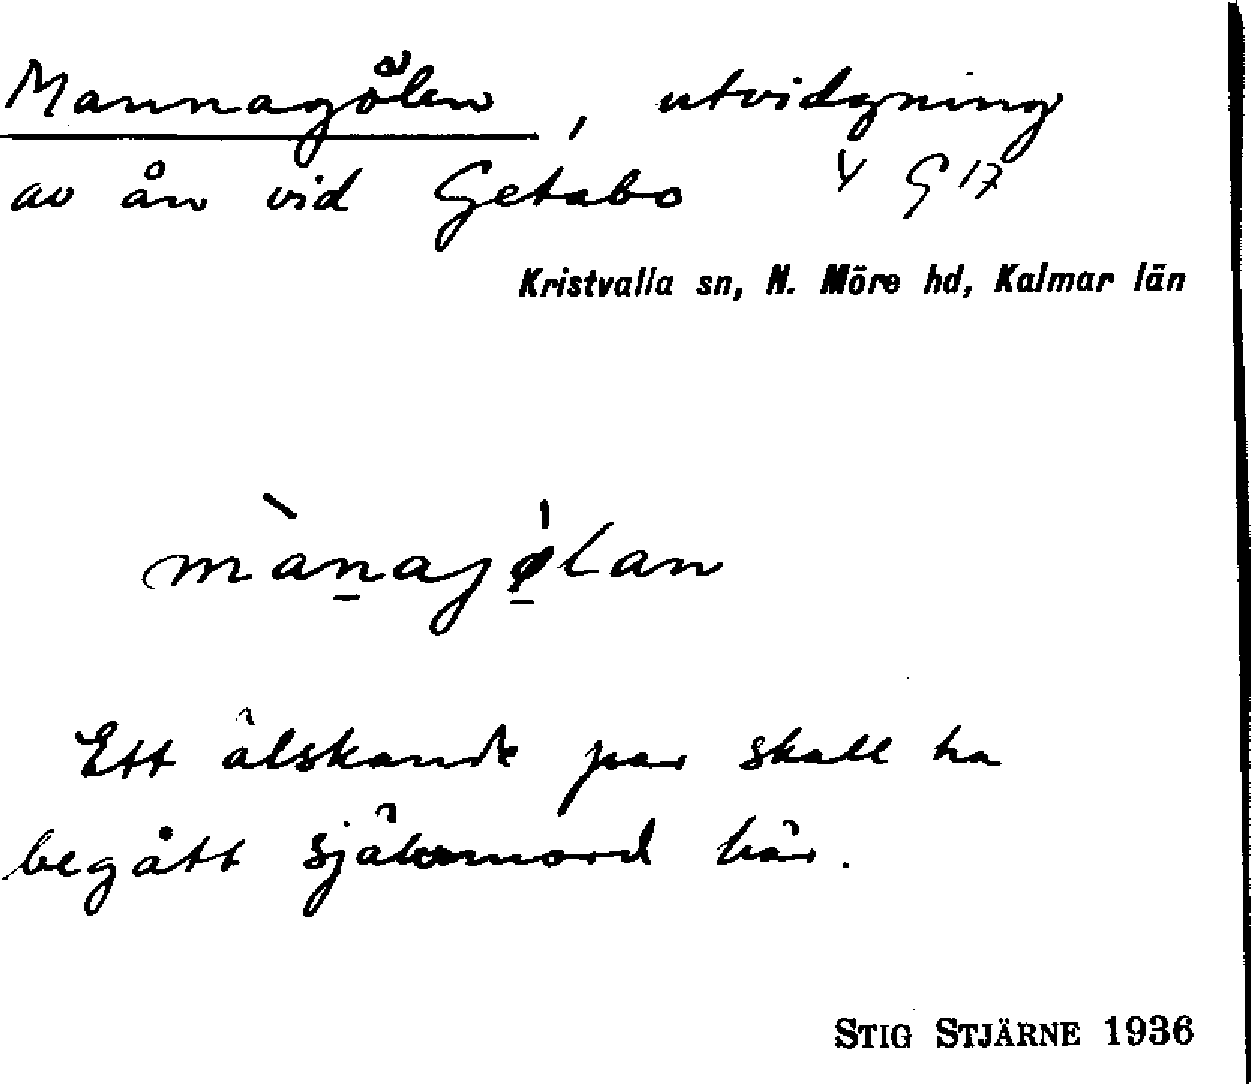 Mannagölen, utvidgning
av ån vid Getabo 4 G 17
Kristvalla sn, N. Möre hd, Kalmar län
mànajölan
Ett älskande par skall ha
begått självmord här.
STIG STJÄRNE 1936